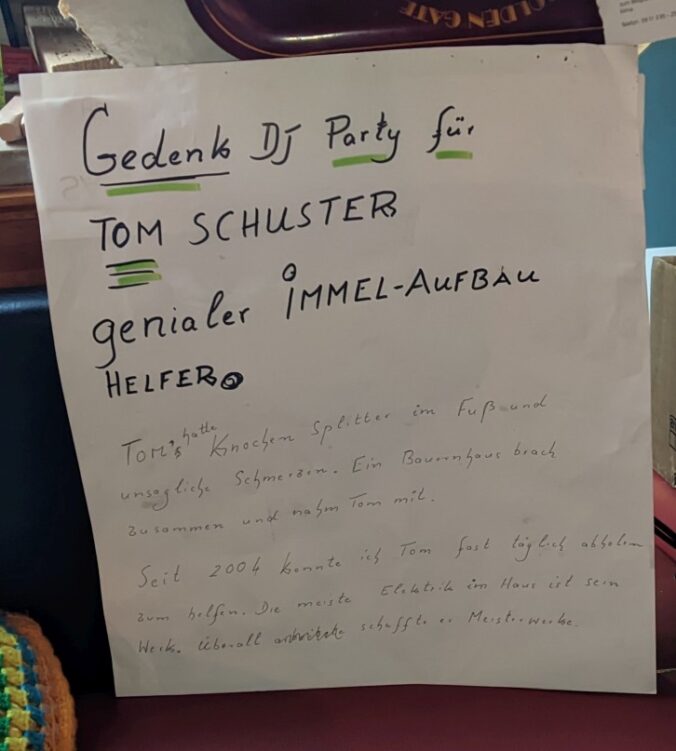 GOLDEN GATE
Gedenk DJ Party für
TOM SCHUSTER
genialer IMMEL-AUFBAU
HELFER.
Tom's hatte Knochen Splitter im Fuß und
unsagliche Schmerzen. Ein Bauernhaus brach
zusammen und nahm Tom mit.
Seit 2004 konnte ich Tom fast täglich abholen
zum helfen. Die meiste Elektrik im Haus ist sein
Werk. Überall schaffte er Meisterwerke.